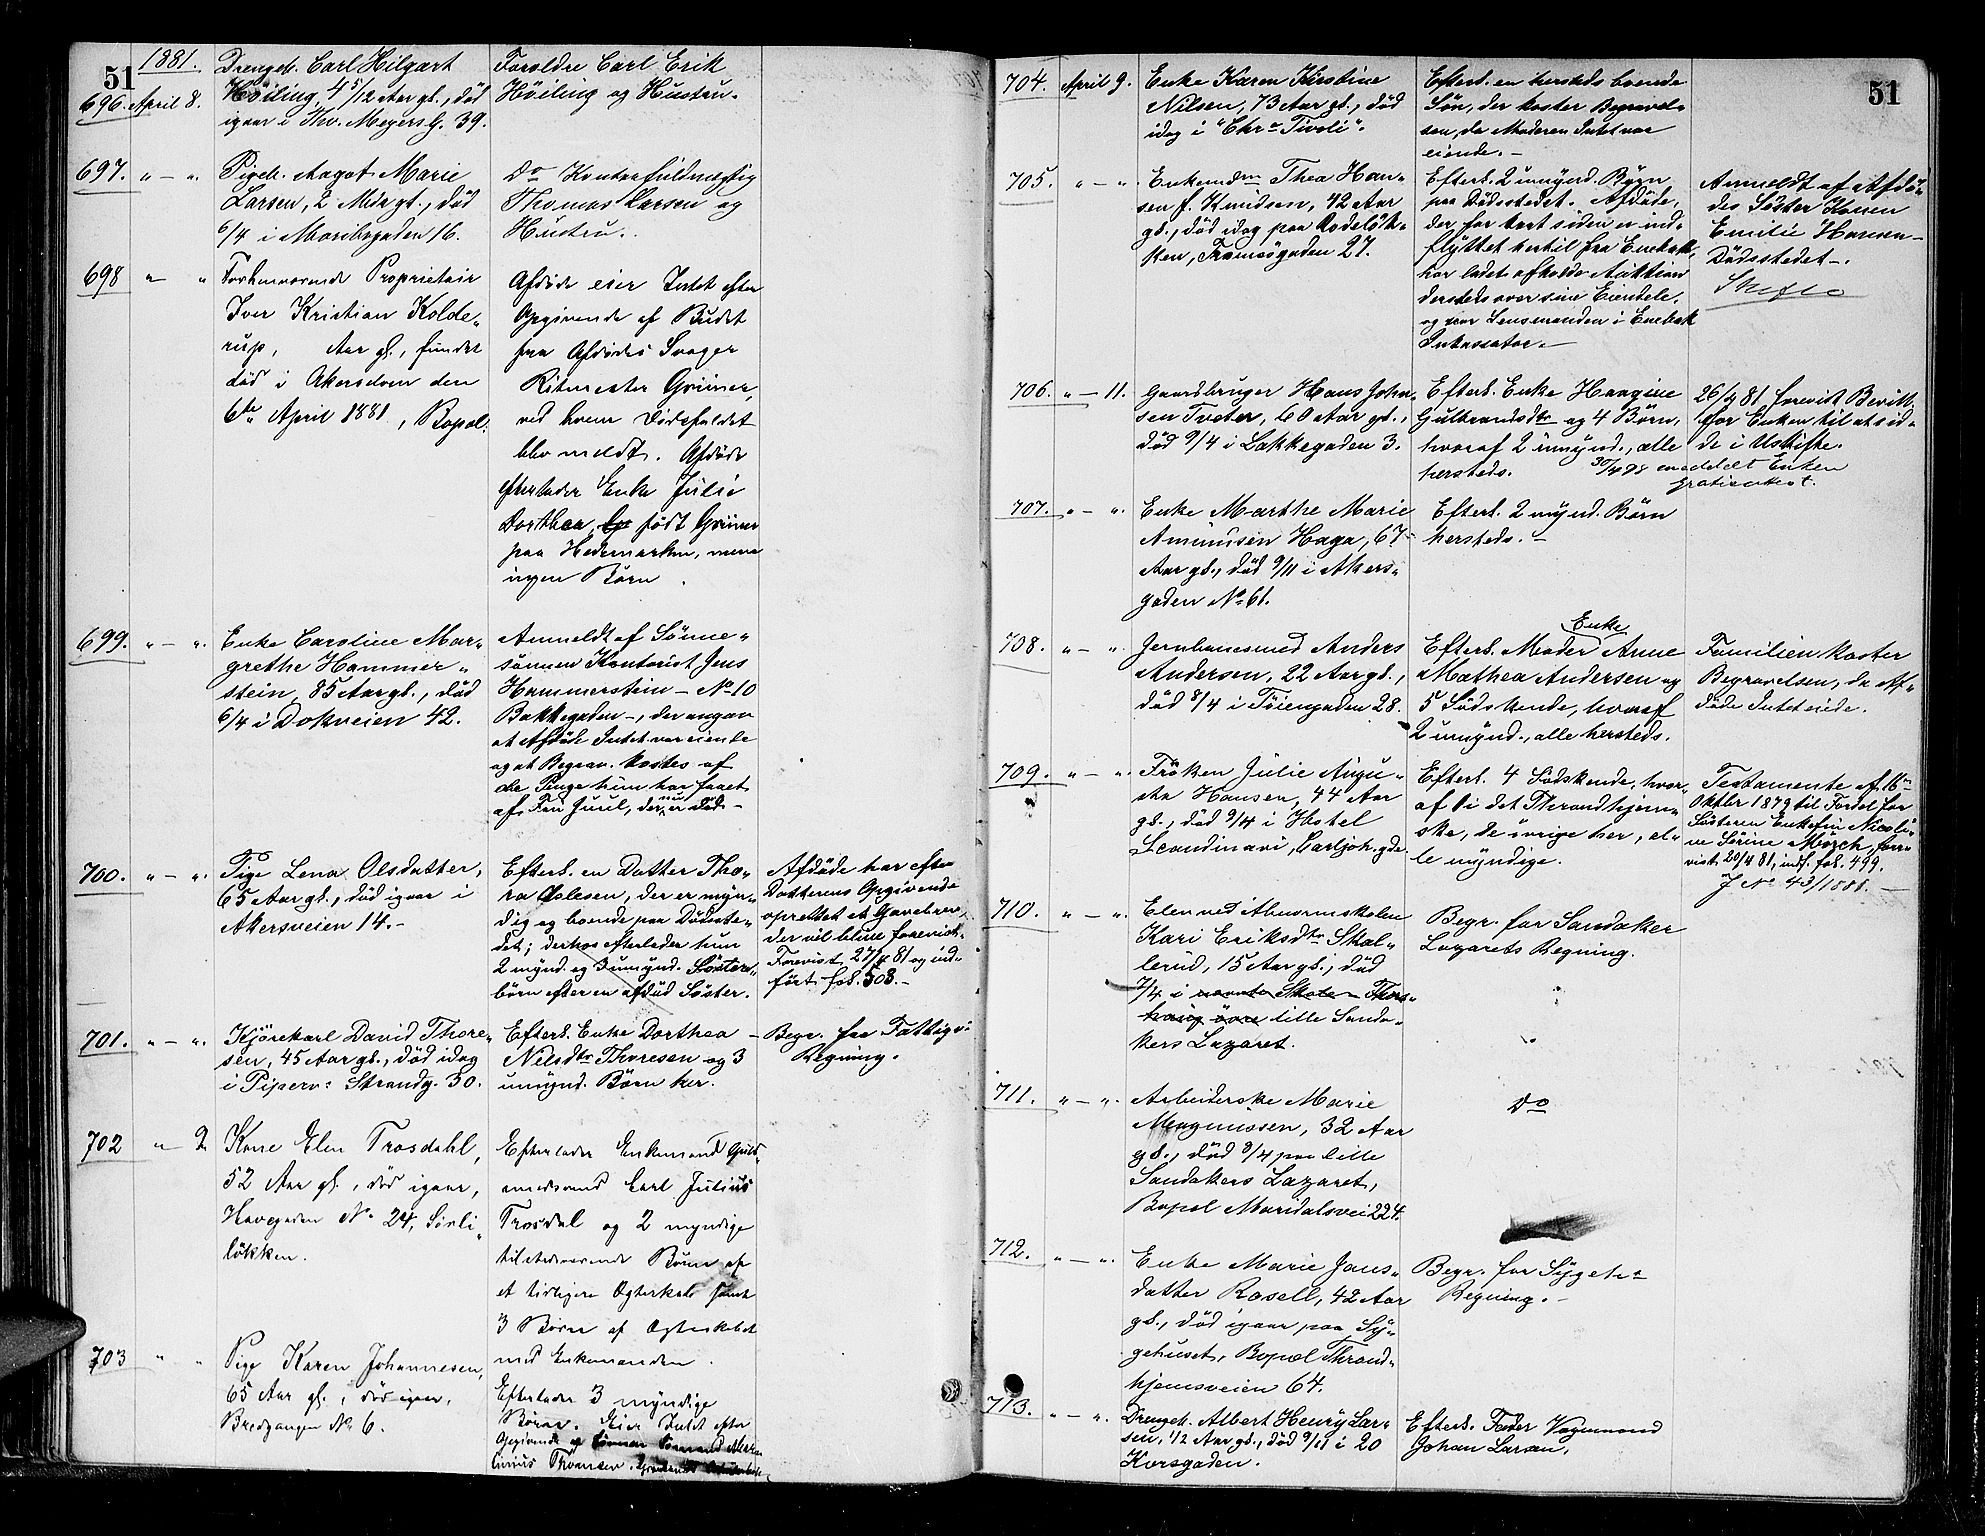 51
1881.
696. April 8.
Drengeb. Carl Hilgart
Höiling, 4 5/12 Aar gl., död
igaar i Thv. Meyers G. 39.
Foreldre Carl Erik
Höiling og Hustru.
697. " — ".
Pigeb. Aagot Marie
Larsen, 2 Mdr gl., död
6/4 i Maribogaden 16.
Do Kontorfuldmægtig
Thomas Larsen og
Hustru.
698 " — "
Forhenværende Proprietair
Iver Kristian Kolde-
rup, Aar gl., fundet
död i Akerselven den
6te April 1881, Bopæl.
Afdöde eier Intet efter
Opgivende af Budet
fra Afdödes Svoger
Ritmester Grüner,
ved hvem Dödsfaldet
blev meldt. Afdöde
efterlader Enke Julie
Dorthea, född Grüner
paa Hedemarken, men
ingen Börn.
699. " — ".
Enke Caroline Mar-
grethe Hammer-
stein, 85 Aar gl., död
6/4 i Dokveien 42.
Anmeldt af Sönne-
sönnen Kontorist Jens
Hammerstein — No 10
Bakkegaden —, der angav
at Afdöde Intet var eiende
og at Begrav. kostes af
de Penge hun har faaet
af Fru Juul, der nu er död. —
700. " — ".
Pige Lena Olsdatter,
65 Aar gl., död igaar i
Akersveien 14. —
Efterl. en Datter Tho-
ra Oslesen, der er myn-
dig og boende paa Dödsste-
det; derhos efterlader hun
2 mynd. og 3 umynd. Söster-
börn efter en afdöd Söster.
Afdöde har efter
Datterens Opgivende
oprettet et Gavebrev,
der vil blive forevist.
Forevist 27/4 81 og ind-
fört fol. 508. —
701. " — ".
Kjörekarl David Thore-
sen, 45 Aar gl., död idag
i Piperv: Strandg. 30.
Efterl. Enke Dorthea
Nilsdtr Thoresen og 3
umynd. Börn her.
Begr. fra Fattigv:
Regning.
702 " — 9
Kone Elen Trosdahl,
52 Aar gl., död igaar,
Havegaden No 24, Sörli-
lökken.
Efterlader Enkemand Guld-
smedsvend Carl Julius
Trosdal og 2 myndige
tilstedeværende Börn af
et tidligere Ægteskab samt
3 Börn af Ægteskabet
med Enkemanden.
703 " "
Pige Karen Johannesen,
65 Aar gl., död igaar,
Bredgangen No 6.
Efterlader 3 myndige
Börn. Eier Intet efter
Opgivende af Sönnen
Thomsen.
51
704. April 9.
Enke Karen Kirstine
Nilsen, 73 Aar gl., död
idag i "Chra Tivoli".
Efterl. en hersteds boende
Sön, der koster Begravel-
sen, da Moderen Intet var
eiende. —
705. " — ".
Enkemdm Thea Han-
sen f. Knudsen, 42 Aar
gl., död idag paa Rodelök-
ken, Tromsögaden 27.
Efterl. 2 umynd. Börn
paa Dödsstedet. Afdöde,
der for kort siden er ind-
flyttet hertil fra Enebak,
har ladet afholde Auktion
dersteds over sine Eiendele,
og var Lensmanden i Enebak
Inkassator. —
Anmeldt af Afdö-
des Söster Karen
Emilie Hansen —
Dödsstedet —.
706. " — 11.
Gaardbruger Hans John-
sen Tveter, 60 Aar gl.,
död 9/4 i Lakkegaden 3.
Efterl. Enke Haagine
Gulbrandsdtr og 4 Börn,
hvoraf 2 umynd., alle
hersteds.
26/4 81 forevist Bevill.
for Enken til at sid-
de i Uskifte.
30/4 98 meddelt Enken
gratisattest.
707. " — ".
Enke Marthe Marie
Amundsen Haga, 67
Aar gl., död 9/11 i Akers-
gaden No 61.
Efterl. 2 mynd. Börn
hersteds. —
708. " — ".
Jernbanesmed Anders
Andersen, 22 Aar gl.,
död 8/4 i Töiengaden 28.
Enke
Efterl. Moder Anne
Mathea Andersen og
5 Södskende, hvoraf
2 umynd., alle hersteds.
Familien koster
Begravelsen, da Af-
döde Intet eiede.
709. " — ".
Fröken Julie Augu-
sta Hansen, 44 Aar
gl., död 9/4 i Hotel
Scandinavi, Carl Joh. gde.
Efterl. 4 Södskende, hvor-
af 1 i det Throndhjem-
ske, de övrige her, al-
le myndige.
Testamente af 16de
Oktbr 1879 til Fordel for
Sösteren Enkefru Nicoli-
ne Sörine Mörch, fore-
vist 20/4 81, indf. fol. 499.
J No 43/1881. —
710. " — ".
Elev ved Abnormskolen
Kari Eriksdtr Skal-
lerud, 15 Aar gl., död
7/4 i nævnte Skole Thors-
haug övre lille Sanda-
kers Lazaret.
Begr. for Sandaker
Lazarets Regning.
711. " — ".
Arbeiderske Marie
Magnussen, 32 Aar
gl., död 8/4 paa lille
Sandakers Lazaret,
Bopæl Maridalsvei 224.
Do
712. " — ".
Enke Marie Jans-
datter Rosell, 42 Aar
gl., död igaar paa Sy-
gehuset, Bopæl Thrond-
hjemsveien 64.
Begr. for Sygeh:
Regning. —
713. " — ".
Drengeb. Albert Henry Lar-
sen, 1/2 Aar gl., död 9/11 i 20
Korsgaden.
Efterl. Fader Vognmand
Johan Larsen.